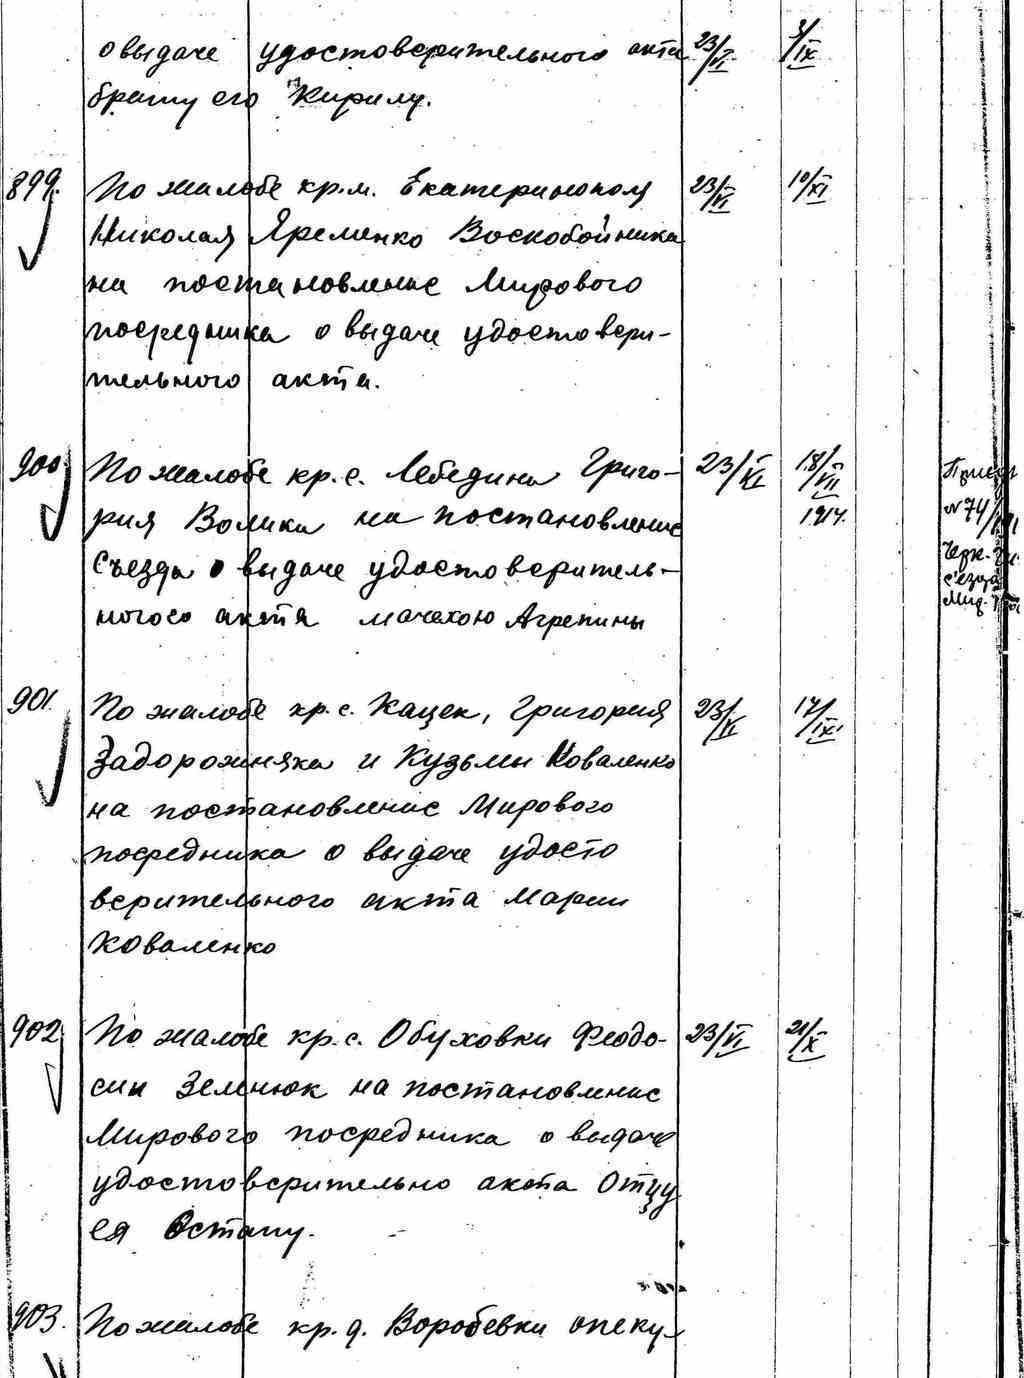 о выдаче удостоверительного акта 23/VI 3/IX
брату его Кирилу.
899. По жалобе кр.м. Екатеринополя 23/VI 10/XI
Николая Яременко Воскобойника
на постановление Мирового
посредника о выдаче удостовери-
тельного акта.
900. По жалобе кр.с. Лебедина Григо- 23/VI 18/VII
рия Волика на постановление 1914.
Съезда о выдаче удостоверитель-
ного акта мачехою Агрепины
№ 74/
901. По жалобе кр.с. Кацек, Григория 23/VI 17/IX
Задорожняка и Кузьмы Коваленко
на постановление Мирового
посредника о выдаче удосто
верительного акта Марии
Коваленко
902. По жалобе кр.с. Обуховки Феодо- 23/VI 21/X
сии Зеленюк на постановление
Мирового посредника о выдаче
удостоверительно акта Отцу
ея Остапу.
903. По жалобе кр.д. Воробевки опеку-